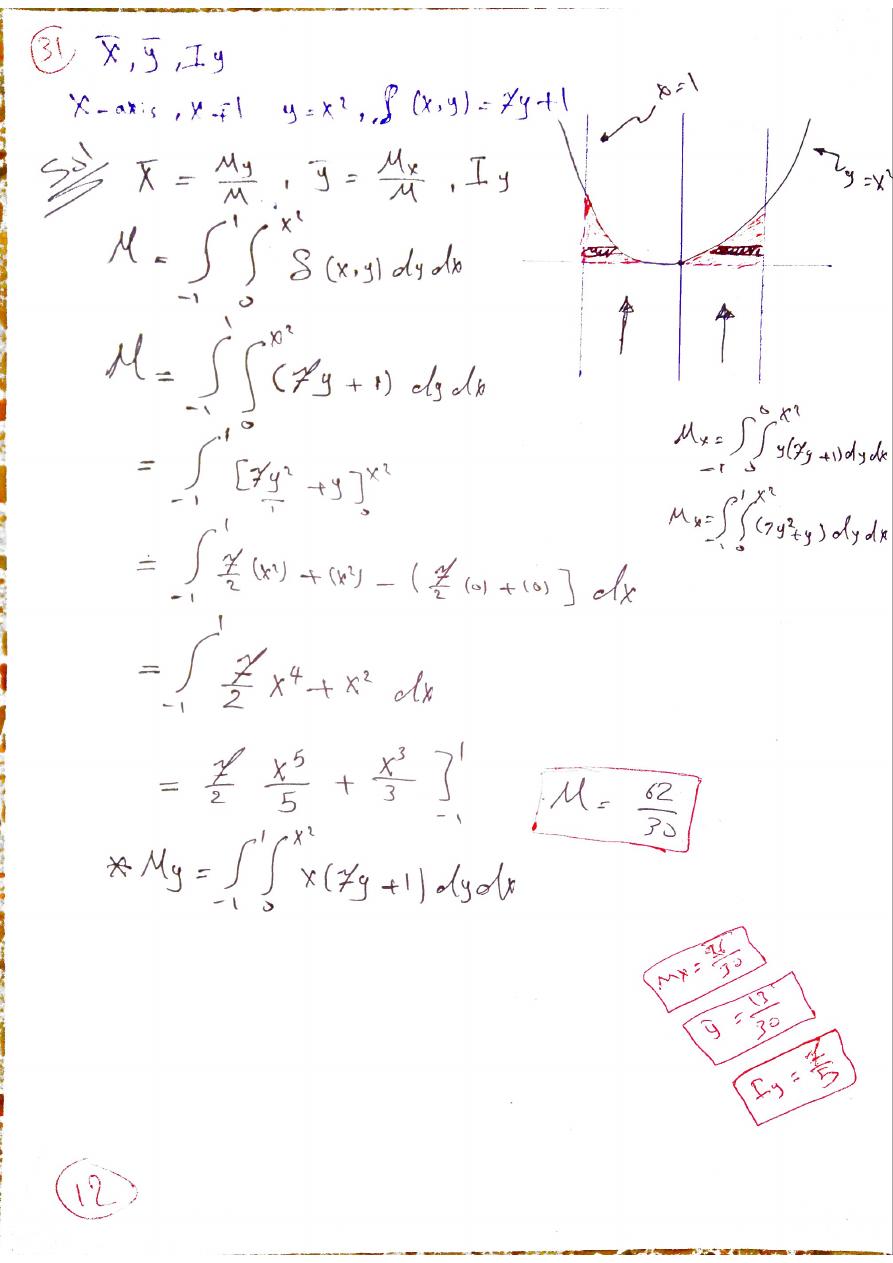 31 x̄, ȳ, Iy
x-axis, x=±1 y=x², δ(x,y)=7y+1
Sol x̄ = My/M, ȳ = Mx/M, Iy
M = ∫₋₁¹ ∫₀^x² δ(x,y) dy dx
M = ∫₋₁¹ ∫₀^x² (7y+1) dy dx
= ∫₋₁¹ [7y²/1 + y]₀^x²
= ∫₋₁¹ 7/2 (x²) + (x²) − (7/2 (0) + (0)] dx
= ∫₋₁¹ 7/2 x⁴ + x² dx
= 7/2 x⁵/5 + x³/3 ]₋₁¹
M = 62/30
* My = ∫₋₁¹ ∫₀^x² x(7y+1) dy dx
x=1
y=x²
Mx = ∫₋₁⁰ ∫₀^x² y(7y+1) dy dx
Mx = ∫₋₁¹ ∫₀^x² (7y²+y) dy dx
Mx = 26/30
ȳ = 13/30
Iy = 7/5
12